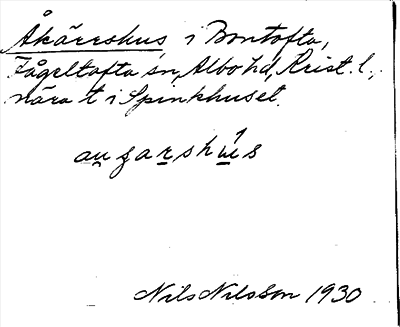 Åkärrshus i Bontofta,
Fågeltofta sn, Albo hd, Krist. l.,
nära t i Spinkhuset.
au̯ɟarshu̯s
Nils Nilsson 1930